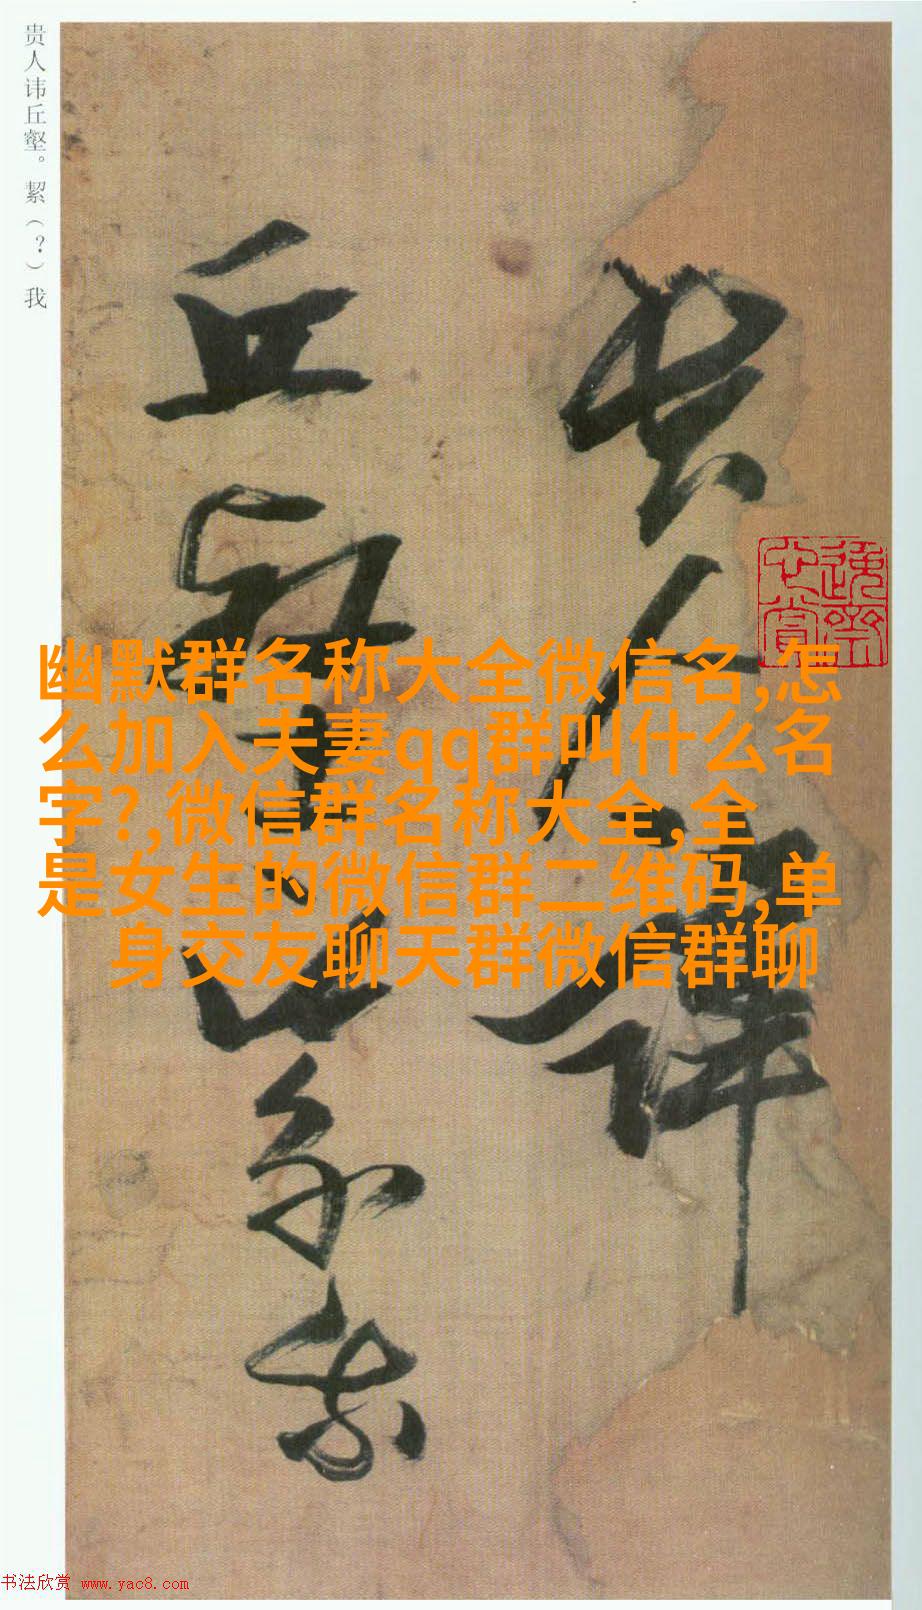 贵人讳丘壑。絜（？）我
贵人讳
丘壑
絜我
幽默群名称大全微信名,怎
么加入夫妻qq群叫什么名
字?,微信群名称大全,全
是女生的微信群二维码,单
身交友聊天群微信群聊
书法欣赏 www.yac8.com